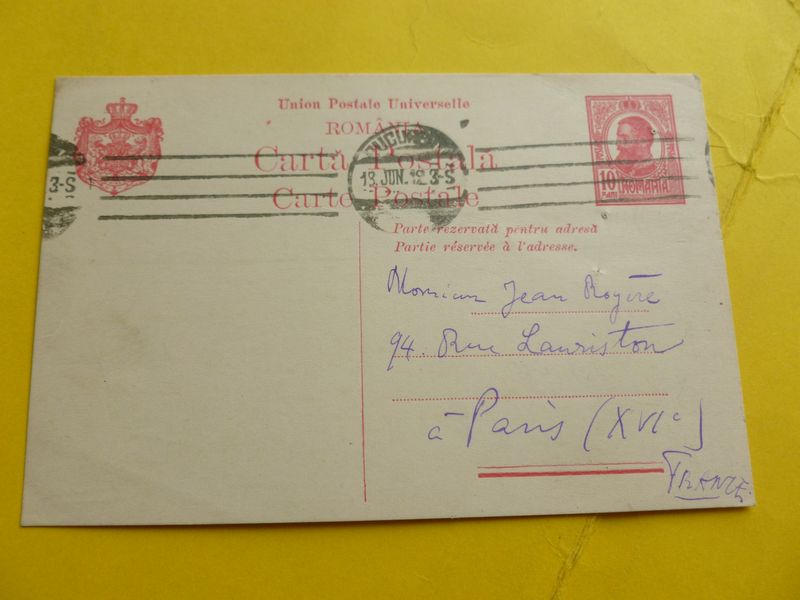 Union Postale Universelle
ROMÂNIA
Cartă Poştală
Carte Postale
3-S
13. JUN. 12. 3-S
10
PANI
ROMANIA
Parte rezervată pentru adresă
Partie réservée à l'adresse.
Monsieur Jean Royère
94. Rue Lauriston
à Paris (XVIe)
FRANCE.